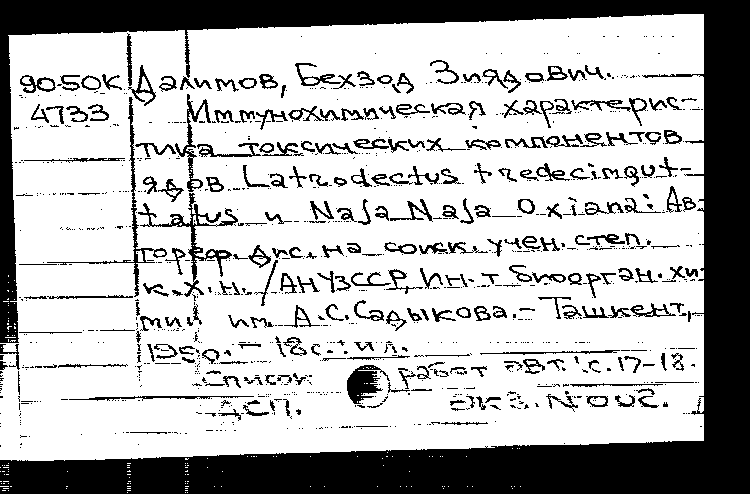 90-50К Далимов, Бехзод Зиядович.
4733 Иммунохимическая характерис-
тика токсических компонентов
ядов Latrodectus tredecimgut-
tatus и Naja Naja Oxiana: Ав-
тореф. дис. на соиск. учен. степ.
к.х.н. / АН УзССР, Ин-т биоорган. хи-
мии им. А.С. Садыкова. - Ташкент,
1990. - 18 с.: ил.
Список работ авт.: с. 17-18.
ДСП. экз.